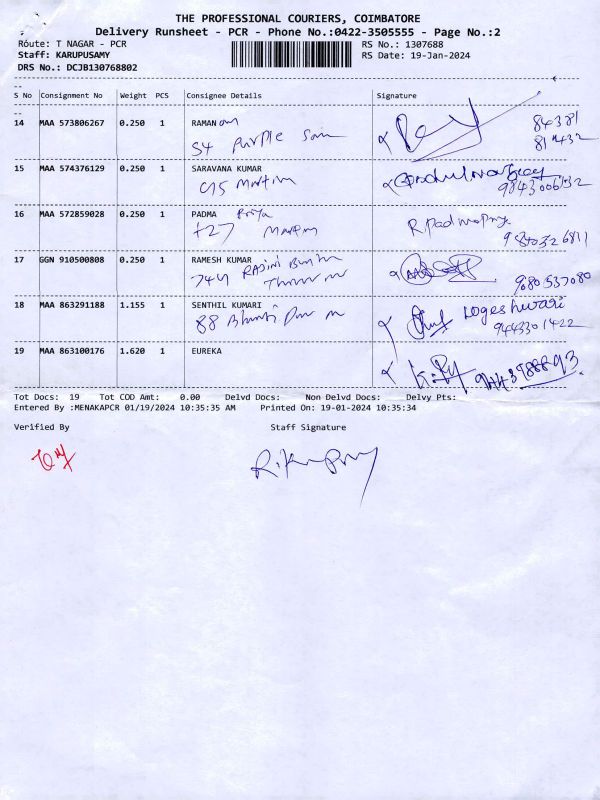 THE PROFESSIONAL COURIERS, COIMBATORE
Delivery Runsheet - PCR - Phone No.:0422-3505555 - Page No.:2
Route: T NAGAR - PCR RS No.: 1307688
Staff: KARUPUSAMY RS Date: 19-Jan-2024
DRS No.: DCJB130768802
S No Consignment No Weight PCS Consignee Details Signature
14 MAA 573806267 0.250 1 RAMAN 84381
54 Purple
15 MAA 574376129 0.250 1 SARAVANA KUMAR
9843006132
16 MAA 572859028 0.250 1 PADMA Priya
9840326811
17 GGN 910500808 0.250 1 RAMESH KUMAR
9080537080
18 MAA 863291188 1.155 1 SENTHIL KUMARI logeshwari
88 9443301422
19 MAA 863100176 1.620 1 EUREKA
Tot Docs: 19 Tot COD Amt: 0.00 Delvd Docs: Non Delvd Docs: Delvy Pts:
Entered By :MENAKAPCR 01/19/2024 10:35:35 AM Printed On: 19-01-2024 10:35:34
Verified By Staff Signature